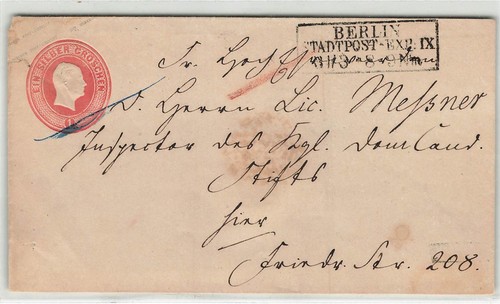 EIN SILBER GROSCHEN
BERLIN
STADTPOST-EXP. IX
11/3 8-9
Sr. Hoch
d. Herrn Lic. Meßner
Inspector des Kgl. Dom Cand.
Stifts
hier
Friedr. Str. 208.